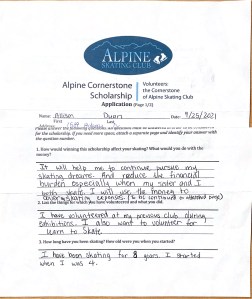 ALPINE
SKATING CLUB
Alpine Cornerstone
Scholarship
Volunteers:
the Cornerstone
of Alpine Skating Club
Application (Page 1/2)
Name: Allison Duan Date: 9/25/2021
First Last
Address:
Please answer the following questions
the scholarship. If you need more space, attach a separate page and identify your answer with the
question number.
1. How would winning this scholarship affect your skating? What would you do with the
money?
It will help me to continue pursue my
skating dreams. And reduce the financial
burden especially when my sister and I
both skate. I will use the money to
skating expenses. (to be continued to attached page)
2. List the things for which you have volunteered and what you did.
I have volunteered at my previous club during
exhibitions. I also want to volunteer for
learn to skate.
3. How long have you been skating? How old were you when you started?
I have been skating for 8 years. I started
when I was 4.